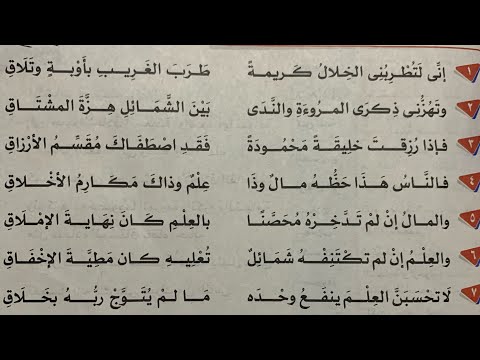 ١ إنِّى لَتُطْرِبُنِى الخِلالُ كَريمةً طَرَبَ الغَرِيبِ بأَوْبةٍ وتَلَاقِ
٢ وتَهُزُّنى ذِكرَى المروءَةِ والنَّدَى بَيْنَ الشَّمَائِلِ هِزَّةَ المشْتَاقِ
٣ فإذا رُزِقتَ خلِيقَةً مَحْمُودَةً فَقَدِ اصْطَفَاكَ مُقَسِّمُ الأَرْزاقِ
٤ فالنَّاسُ هَذَا حَظُّهُ مالٌ وذَا عِلْمٌ وذاكَ مَكَارِمُ الأَخْلاقِ
٥ والمالُ إنْ لَمْ تَدَّخِرْهُ مُحَصَّنًا بالعِلْمِ كَانَ نِهَايةَ الإمْلَاقِ
٦ والعِلْمُ إنْ لم تكْتَنِفْهُ شَمَائِلٌ تُعْلِيهِ كان مَطِيَّةَ الإخْفَاقِ
٧ لَا تحْسَبَنَّ العِلْمَ ينْفَعُ وحْدَه مَا لمْ يُتَوَّجْ ربُّهُ بخَلَاقِ